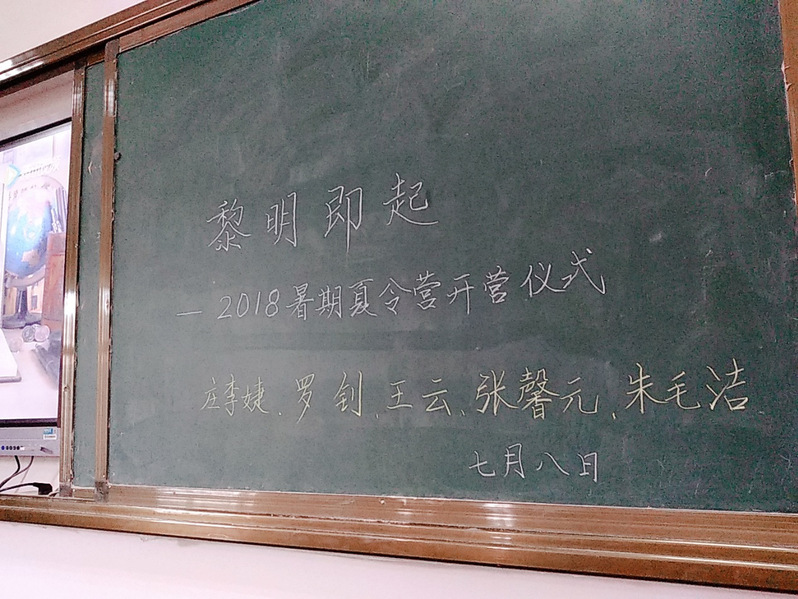 黎明即起
—2018暑期夏令营开营仪式
庄李婕、罗钊、王云、张馨元、朱毛洁
七月八日